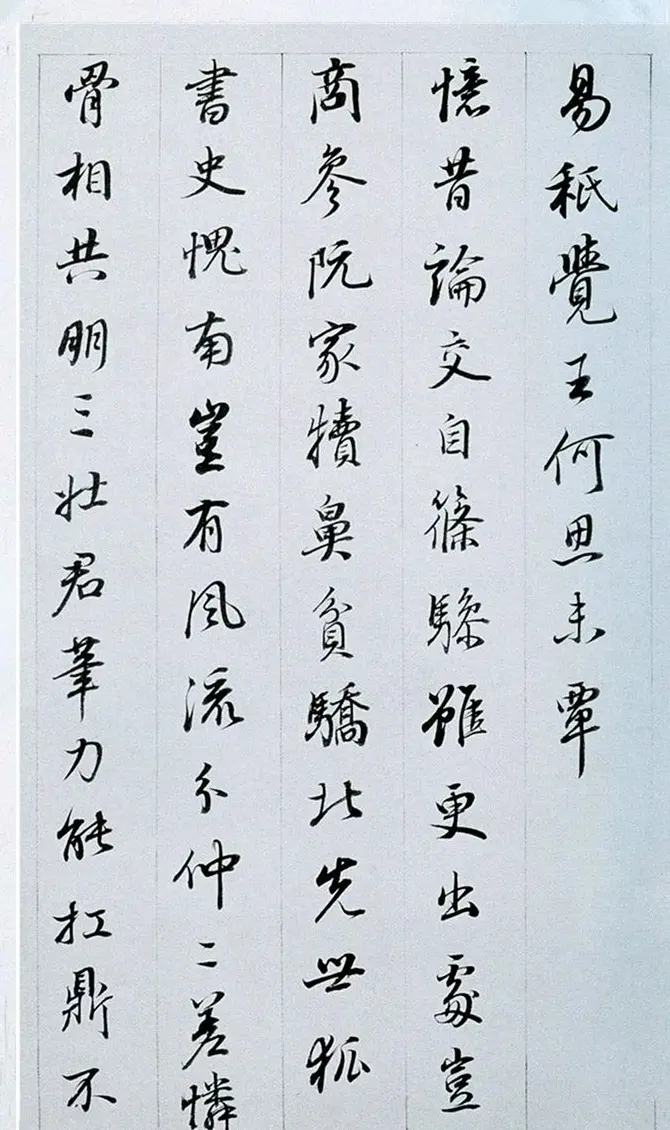 易秖覺王何思未覃
憶昔論交自篠驂雖更出處豈
商參阮家犢鼻貧驕北先世狐
書史愧南豈有風流分仲二差憐
骨相共朋三壯君筆力能扛鼎不